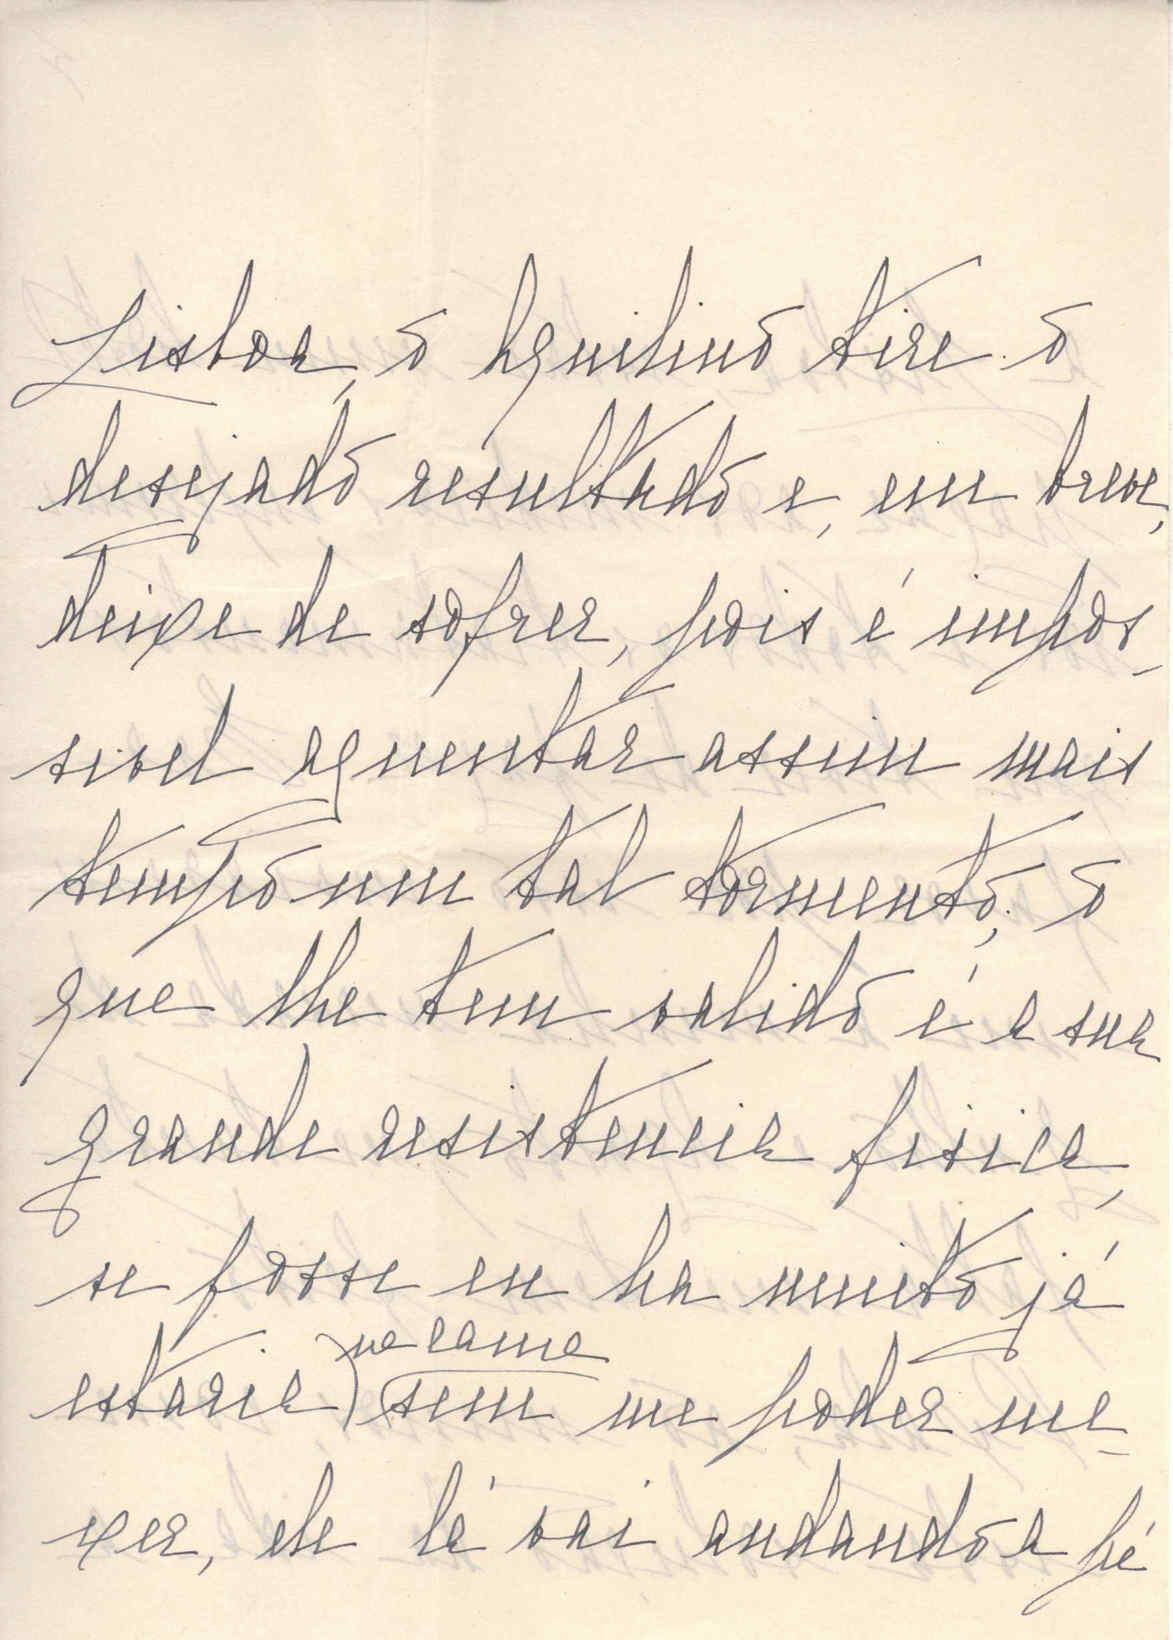 Lisboa, o Aquilino tire o
desejado resultado e, em breve,
deixe de sofrer, pois é impos-
sivel aguentar assim mais
tempo um tal tormento; o
que lhe tem valido é a sua
grande resistencia fisica,
se fosse eu ha muito já
na cama
estaria sem me poder me-
xer, ele lá vai andando a pé